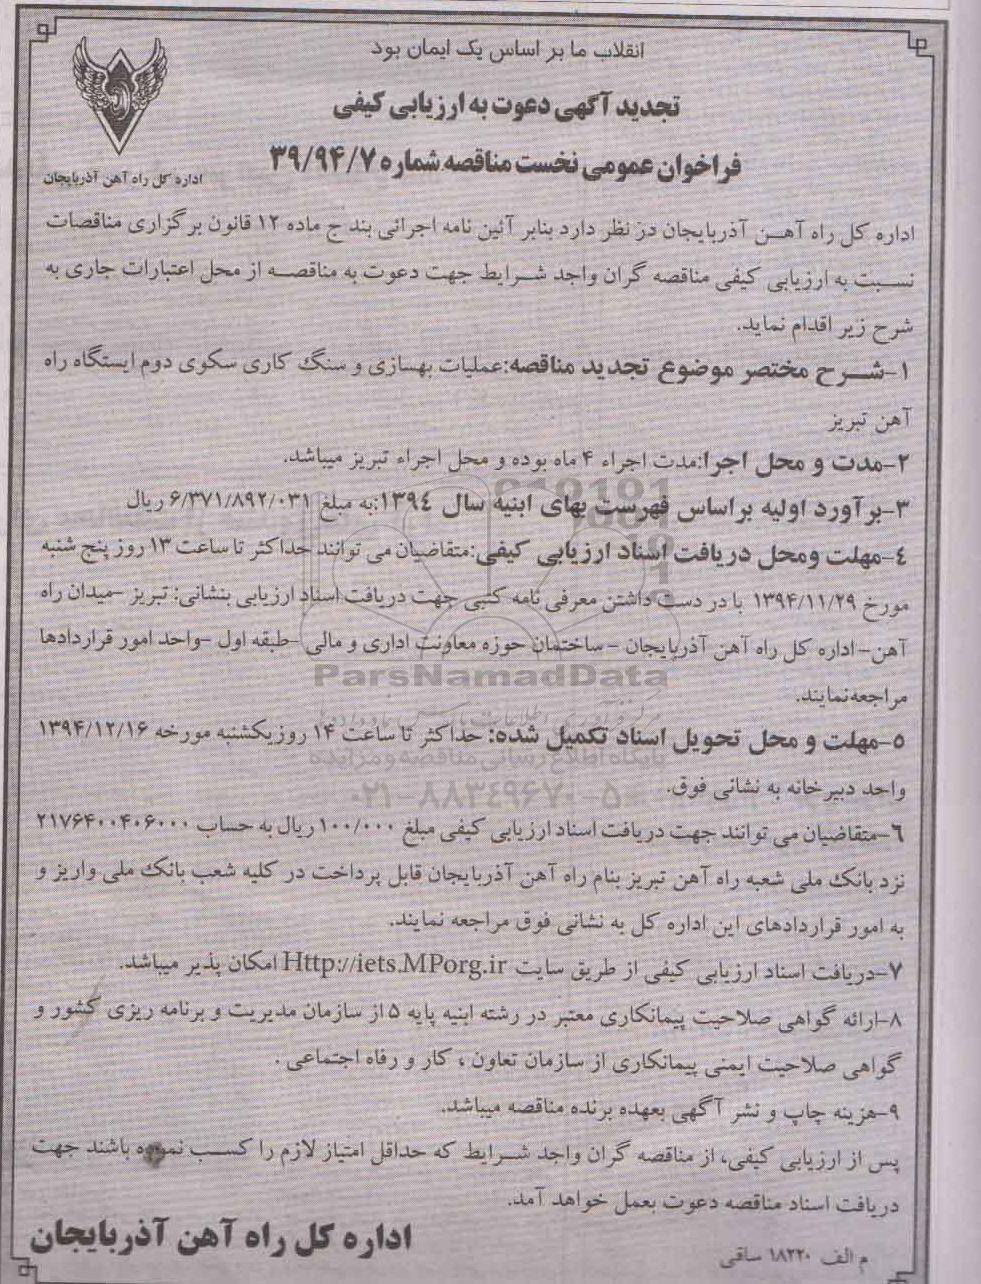 انقلاب ما بر اساس یک ایمان بود
تجدید آگهی دعوت به ارزیابی کیفی
فراخوان عمومی نخست مناقصه شماره ۳۹/۹۴/۷
اداره کل راه آهن آذربایجان
اداره کل راه آهن آذربایجان در نظر دارد بنابر آئین نامه اجرائی بند ج ماده ۱۲ قانون برگزاری مناقصات
نسبت به ارزیابی کیفی مناقصه گران واجد شرایط جهت دعوت به مناقصه از محل اعتبارات جاری به
شرح زیر اقدام نماید.
۱-شرح مختصر موضوع تجدید مناقصه:عملیات بهسازی و سنگ کاری سکوی دوم ایستگاه راه
آهن تبریز
۲-مدت و محل اجرا:مدت اجراء ۴ ماه بوده و محل اجراء تبریز میباشد.
۳-برآورد اولیه براساس فهرست بهای ابنیه سال ۱۳۹٤:به مبلغ ۶/۳۷۱/۸۹۲/۰۳۱ ریال
٤-مهلت ومحل دریافت اسناد ارزیابی کیفی:متقاضیان می توانند حداکثر تا ساعت ۱۳ روز پنج شنبه
مورخ ۱۳۹۴/۱۱/۲۹ با در دست داشتن معرفی نامه کتبی جهت دریافت اسناد ارزیابی بنشانی: تبریز -میدان راه
آهن-اداره کل راه آهن آذربایجان - ساختمان حوزه معاونت اداری و مالی -طبقه اول -واحد امور قراردادها
مراجعه‌نمایند.
ParsNamadData
۵-مهلت و محل تحویل اسناد تکمیل شده: حداکثر تا ساعت ۱۴ روزیکشنبه مورخه ۱۳۹۴/۱۲/۱۶
پایگاه اطلاع رسانی مناقصه و مزایده
واحد دبیرخانه به نشانی فوق.
۰۲۱-۸۸۳۴۹۶۷۰-۵
٦-متقاضیان می توانند جهت دریافت اسناد ارزیابی کیفی مبلغ ۱۰۰/۰۰۰ ریال به حساب ۲۱۷۶۴۰۰۴۰۶۰۰۰
نزد بانک ملی شعبه راه آهن تبریز بنام راه آهن آذربایجان قابل پرداخت در کلیه شعب بانک ملی واریز و
به امور قراردادهای این اداره کل به نشانی فوق مراجعه نمایند.
۷-دریافت اسناد ارزیابی کیفی از طریق سایت Http://iets.MPorg.ir امکان پذیر میباشد.
۸-ارائه گواهی صلاحیت پیمانکاری معتبر در رشته ابنیه پایه ۵ از سازمان مدیریت و برنامه ریزی کشور و
گواهی صلاحیت ایمنی پیمانکاری از سازمان تعاون ، کار و رفاه اجتماعی .
۹-هزینه چاپ و نشر آگهی بعهده برنده مناقصه میباشد.
پس از ارزیابی کیفی، از مناقصه گران واجد شرایط که حداقل امتیاز لازم را کسب نموده باشند جهت
دریافت اسناد مناقصه دعوت بعمل خواهد آمد.
اداره کل راه آهن آذربایجان
م الف ۱۸۲۲۰ ساقی